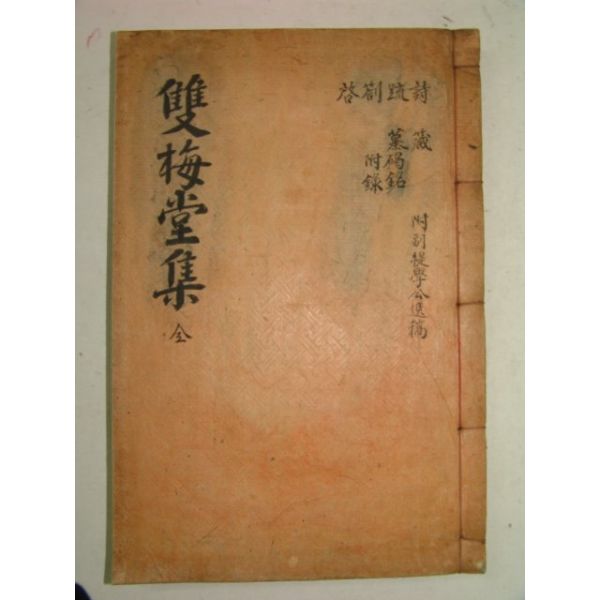 詩 箴 附副提學公遺稿
疏 墓碣銘
劄 附錄
啓
雙梅堂集 全